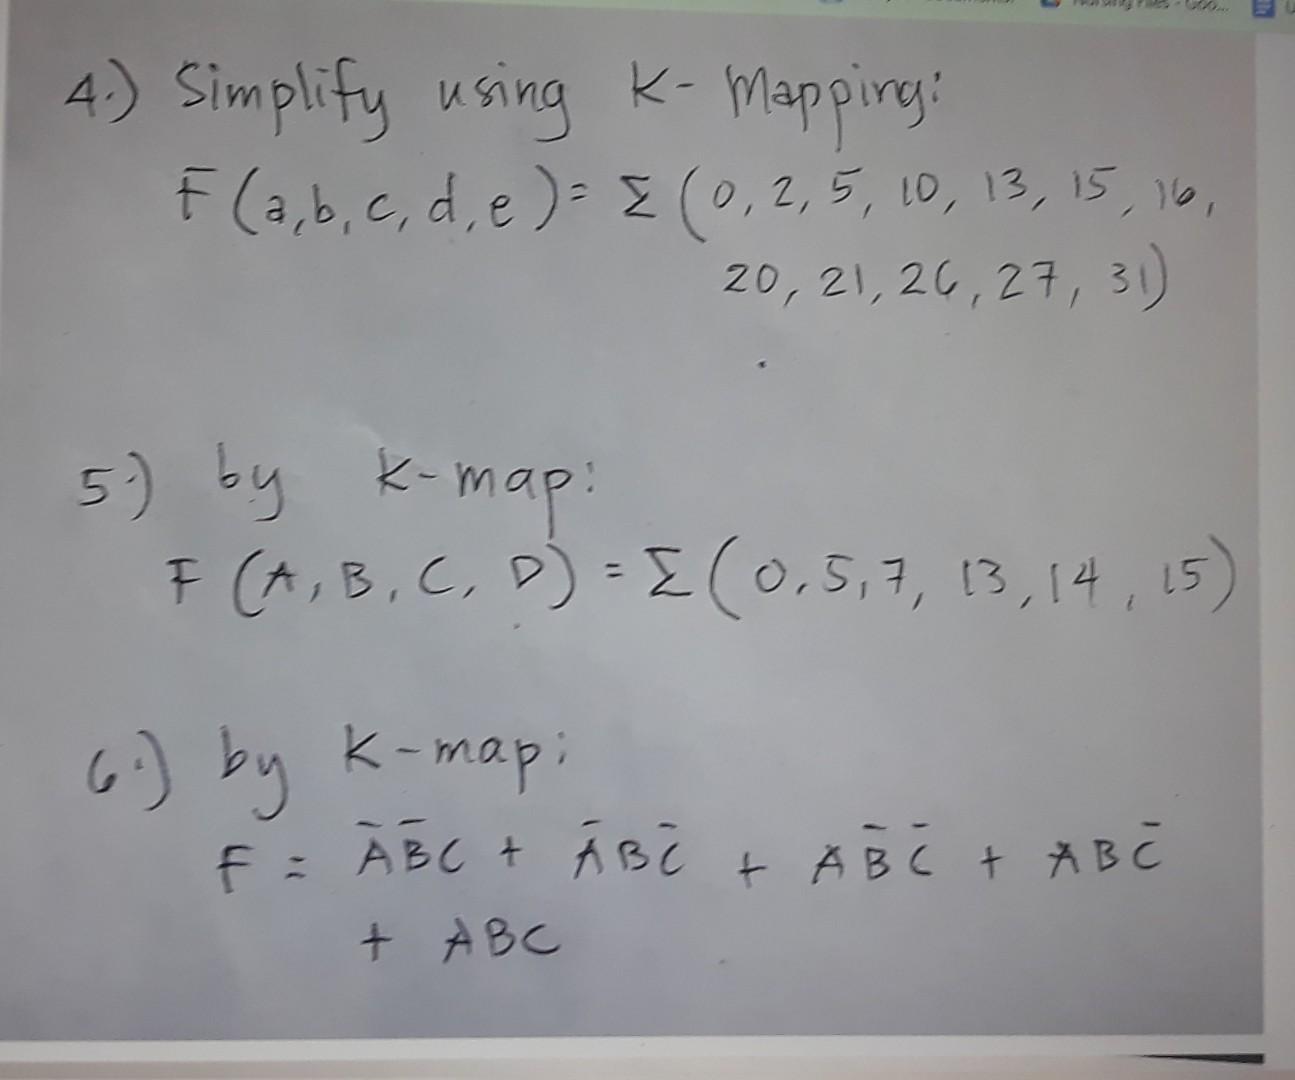 4.) Simplify using K-Mapping:
F(a,b,c,d,e)= Σ(0,2,5,10,13,15,16,
20,21,26,27,31)
5.) by K-map:
F(A,B,C,D)=Σ(0,5,7,13,14,15)
6.) by K-map:
F = A̅B̅C + A̅BC̅ + AB̅C̅ + ABC̅
+ ABC